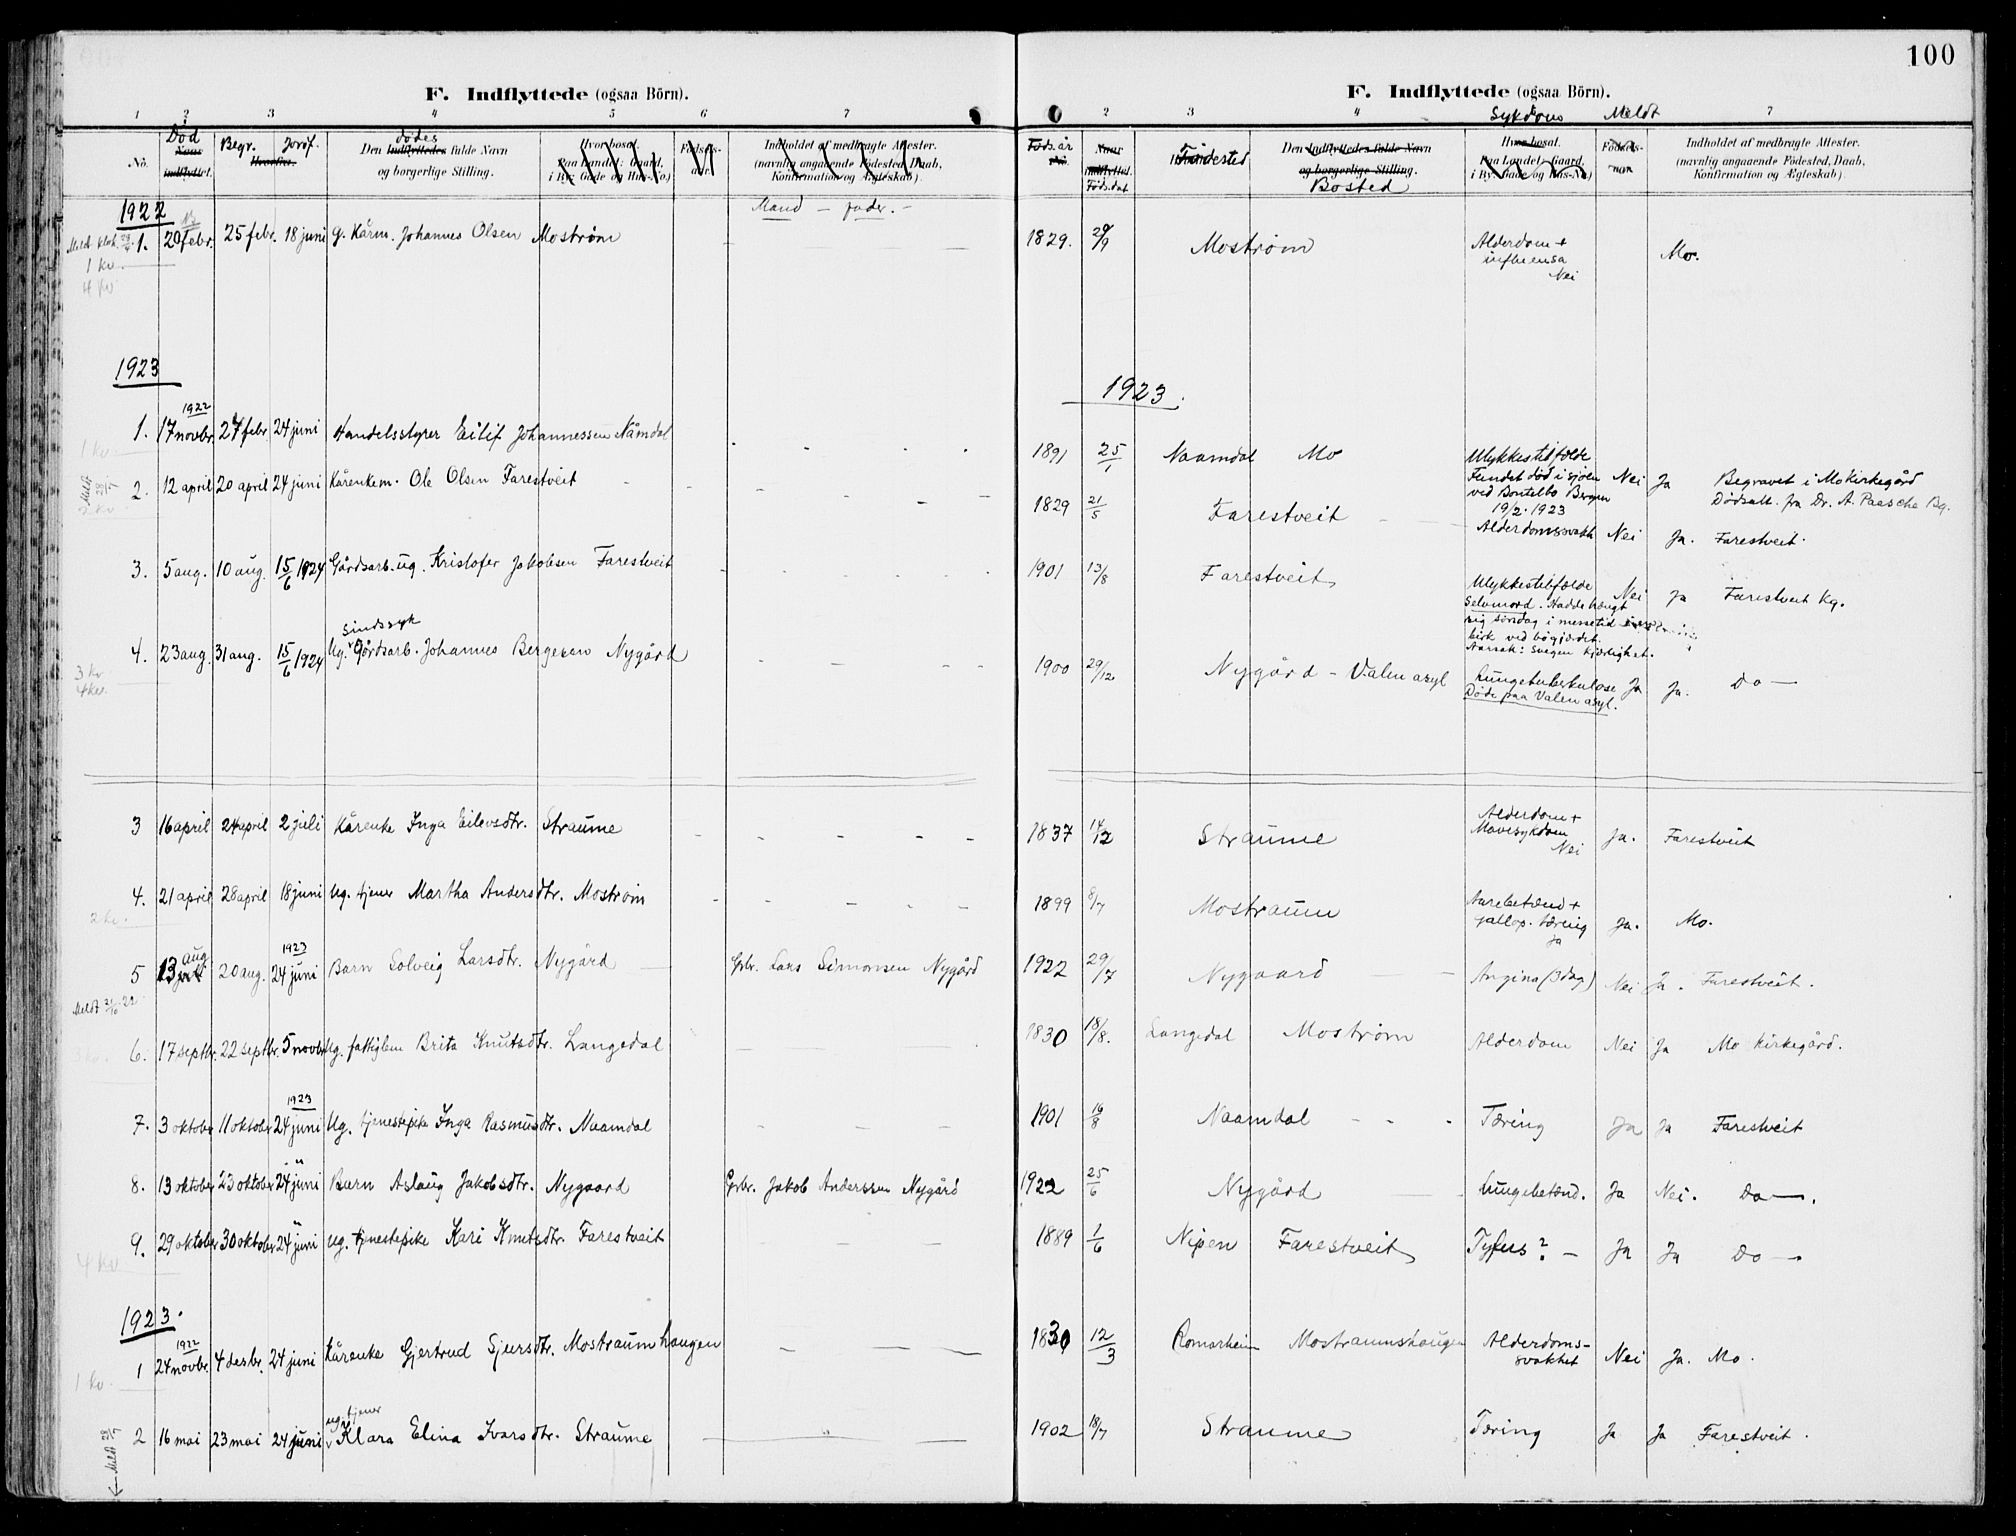 100
F. Indflyttede (ogsaa Börn).
1 2 3 4 5 6 7
Død
Begr. Jordf. dødes
No. Naar indflyttet. Hvorfra. Den Indflyttedes fulde Navn og borgerlige Stilling. Hvor bosat. Paa Landet: Gaard, i By: Gade og Hus-No.) Fødsels-aar. Indholdet af medbragte Attester. (navnlig angaaende Fødested, Daab, Konfirmation og Ægteskab).
Mand – fader. –
1922
1. 20 febr. 25 febr. 18 juni g. Kårm. Johannes Olsen Mostrøm
1 kv.
1923
1922
1. 17 novbr. 27 febr. 24 juni Handelsstyrer Eilif Johannessen Nåmdal
1 kv.
2. 12 april 20 april 24 juni Kårenkem. Ole Olsen Farestveit
3. 5 aug. 10 aug. 15/6 1924 Gårdsarb. ug. Kristofer Jakobsen Farestveit
sindssyk
4. 23 aug. 31 aug. 15/6 1924 Ug. Gårdsarb. Johannes Bergesen Nygård
3 kv
4 kv.
3 16 april 24 april 2 juli Kårenke Inga Eilevsdtr. Straume
4. 21 april 28 april 18 juni Ug. tjener Martha Andersdtr. Mostrøm
2 kv.
aug. 1923
5 13 juli 20 aug. 24 juni Barn Solveig Larsdtr. Nygård Gbr. Lars Simonsen Nygård
Meldt 31/10 22.
6. 17 septbr. 22 septbr. 5 novbr. Ug. fattiglem Brita Knutsdtr. Langedal
3 kv.
1923
7. 3 oktober 11 oktober 24 juni Ug. tjenestepike Inga Rasmusdtr. Naamdal
8. 13 oktober 23 oktober 24 juni Barn Aslaug Jakobsdtr. Nygaard Gbr. Jakob Anderssen Nygård
9. 29 oktober 30 oktober 24 juni ug. tjenestepike Kari Knutsdtr. Farestveit
4 kv
1923.
1922
1 24 novbr. 4 desbr. 24 juni Kårenke Gjertrud Sjursdtr. Mostraumhaugen
1 kv.
ug. tjener
2 16 mai 23 mai 24 juni Klara Elina Ivarsdtr. Straume
F. Indflyttede (ogsaa Börn).
2 3 4 7
Sykdom Meldt
Føds. år No. Naar indflyttet. Føds. dat Fødested Den Indflyttedes fulde Navn og borgerlige Stilling. Bosted Hvor bosat. Paa Landet: Gaard, i By: Gade og Hus-No.) Indholdet af medbragte Attester. (navnlig angaaende Fødested, Daab, Konfirmation og Ægteskab).
1829. 29/9 Mostrøm Alderdom + influensa Nei Mo.
1923.
1891 25/1 Naamdal Mo Ulykkestilfælde Fundet død i sjøen ved Bontelbo Bergen 19/2. 1923 Nei Ja Begravet i Mo Kirkegård Dødsatt. fra Dr. A. Paasche Bg.
1829 21/5 Farestveit Alderdomssvakh Nei Ja. Farestveit.
1901 13/8 Farestveit Ulykkestilfælde Selvmord. Hadde hængt sig søndag i messetid kirk ved bøgjærdet. Aarsak: svegen kjærlighet. Nei Ja Farestveit Kg.
1900 29/12 Nygård – Valen asyl Lungetuberkulose Døde paa Valen asyl. Ja Ja. Do —
1837 14/2 Straume Alderdom + Mavesykdom Nei Ja. Farestveit
1899 8/7 Mostraum Aarebetænd + gallop. tæring ja Ja. Mo.
1922 29/7 Nygaard Angina (3 dag) Nei Ja. Farestveit.
1830 18/8. Langedal Mostrøm Alderdom Nei Ja Mo Kirkegård.
1901 16/8 Naamdal Tæring Ja Ja Farestveit
1922 25/6 Nygård Lungebetænd. Ja Nei. Do —.
1889 1/6 Nipen Farestveit Tyfus? – Ja Ja Do —
1830 12/3 Romarheim Mostraumshaugen Alderdoms-svakhet Nei Ja. Mo.
1902 18/7 Straume Tæring Ja Ja Farestveit.